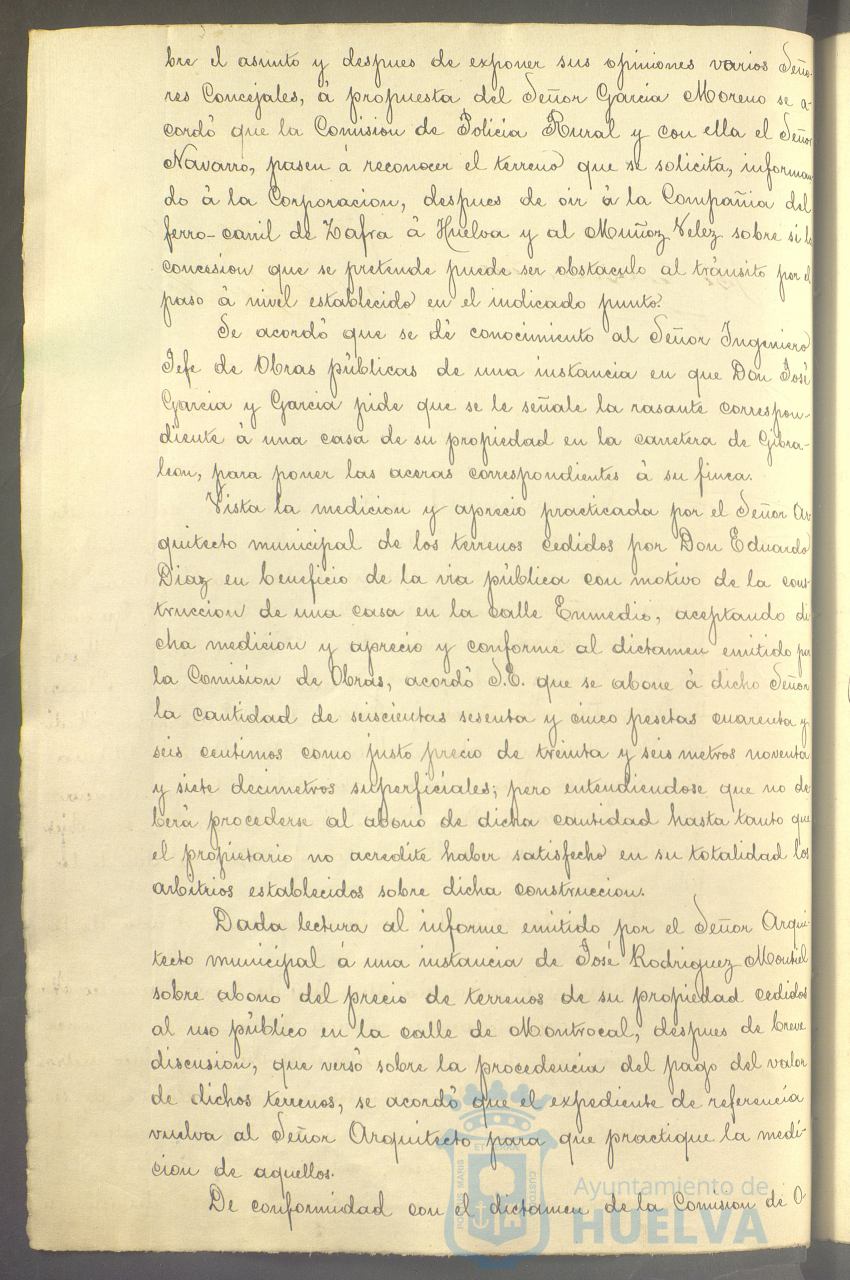 bre el asunto y despues de exponer sus opiniones varios Seño-
res Concejales, á propuesta del Señor Garcia Moreno se a-
cordó que la Comision de Policia Rural y con ella el Señor
Navarro, pasen á reconocer el terreno que se solicita, informan-
do á la Corporacion, despues de oir á la Compañia del
ferro-carril de Zafra á Huelva y al Muñoz Velez sobre si la
concesion que se pretende puede ser obstaculo al tránsito por el
paso á nivel establecido en el indicado punto.
Se acordó que se dé conocimiento al Señor Ingeniero
Jefe de Obras públicas de una instancia en que Don José
Garcia y Garcia pide que se le señale la rasante correspon-
diente á una casa de su propiedad en la carretera de Gibra-
leon, para poner las aceras correspondientes á su finca.
Vista la medicion y aprecio practicada por el Señor Ar-
quitecto municipal de los terrenos cedidos por Don Eduardo
Diaz en beneficio de la via pública con motivo de la cons-
truccion de una casa en la calle Enmedio, aceptando di-
cha medicion y aprecio y conforme al dictamen emitido por
la Comision de Obras, acordó S.E. que se abone á dicho Señor
la cantidad de seiscientas sesenta y cinco pesetas cuarenta y
seis centimos como justo precio de treinta y seis metros noventa
y siete decimetros superficiales; pero entendiendose que no de-
berá procederse al abono de dicha cantidad hasta tanto que
el propietario no acredite haber satisfecho en su totalidad los
arbitrios establecidos sobre dicha construccion.
Dada lectura al informe emitido por el Señor Arqui-
tecto municipal á una instancia de José Rodriguez Montiel
sobre abono del precio de terrenos de su propiedad cedidos
al uso público en la calle de Montrocal, despues de breve
discusion, que versó sobre la procedencia del pago del valor
de dichos terrenos, se acordó que el expediente de referencia
vuelva al Señor Arquitecto para que practique la medi-
cion de aquellos.
De conformidad con el dictamen de la Comision de O-
PORTUS MARIS ET TERRAE CUSTODIA
Ayuntamiento de
HUELVA